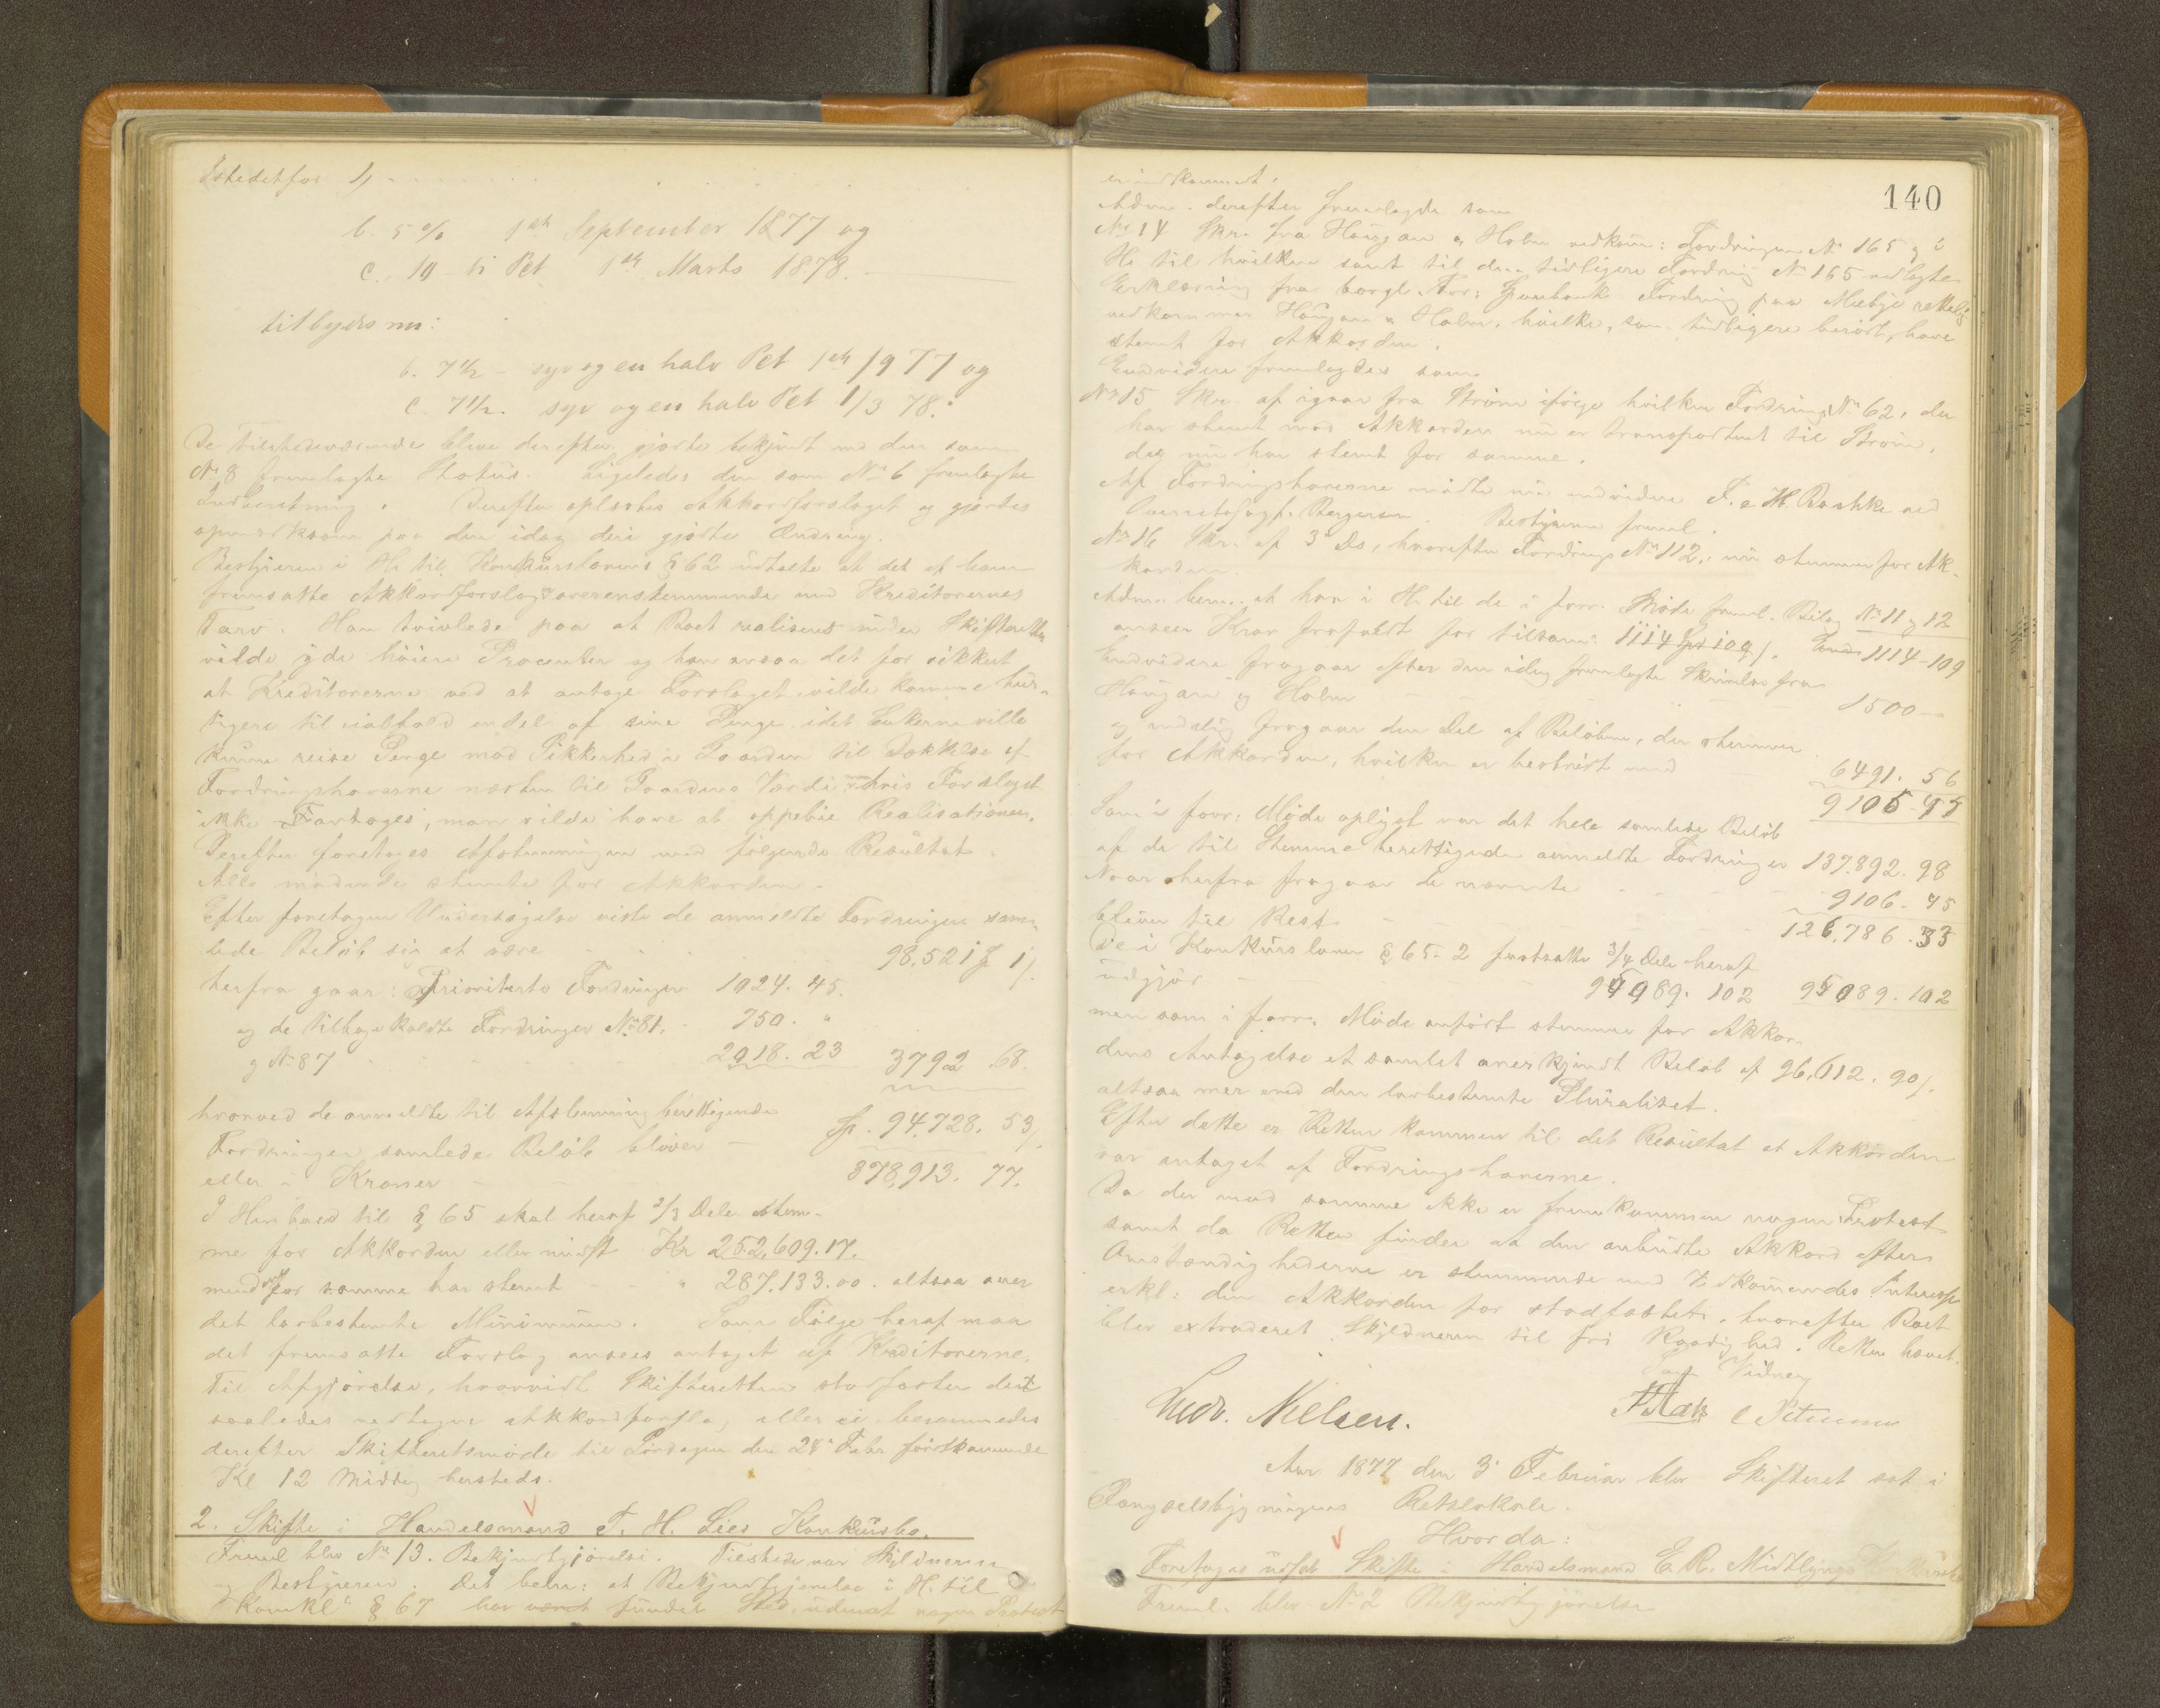 Istedetfor 1)
b. 5 % 1ste September 1877 og
c. 10 - ti Pct 1ste Marts 1878.
tilbydes nu:
b. 7 1/2 - syv og en halv Pct 1/9 77 og
c. 7 1/2 - syv og en halv Pct 1/3 78.
De Tilstedeværende bleve derefter gjorte bekjendt med den som
No 8 fremlagte Status. Ligeledes den som No 6 fremlagte
Indberetning. Derefter oplæstes Akkordforslaget og gjordes
opmærksom paa den idag deri gjorte Ændring.
Bestyreren i H. til Konkurslovens § 62 udtalte at det af ham
fremsatte Akkordforslag overensstemmende med Kreditorernes
Tarv. Han tvivlede paa at Boet realiseret under Skifteretten
vilde yde høiere Procenter og han ansaa det for sikkert
at Kreditorerne ved at antage Forslaget vilde komme hur-
tigere til ialfald endel af sine Penge idet Enkerne ville
kunne reise Penge mod Sikkerhed i Gaarden til Dækkelse af
Fordringshaverne næsten til Gaardens Værdi hvis Forslaget
ikke Antoges, man vilde have at oppebie Realisationen.
Derefter foretoges Afstemningen med følgende Resultat.
Alle mødende stemte for Akkorden.
Efter foretagen Undersøgelse viste de anmeldte Fordringer sam-
lede Beløb sig at være 98,521 1/.
herfra gaar: Prioriterte Fordringer 1024. 45.
og de tilbagekaldte Fordringer No 81. 750. "
og No 87 2018. 23 3792. 68.
hvorved de anmeldte til Afstemning berettigende
Fordringer samlede Beløb bliver Sp. 94,728. 53/.
eller i Kroner 378,913. 77.
I Henhold til § 65 skal heraf 2/3 Dele stem-
me for Akkorden eller mindst Kr 252,609.17.
med for samme har stemt " 287.133.00. altsaa over
det lovbestemte Minimum. Som Følge heraf maa
det fremsatte Forslag ansees antaget af Kreditorerne.
Til Afgjørelse, hvorvidt Skifteretten stadfæster det
saaledes vedtagne Akkordforslag eller ei berammedes
derefter Skifteretsmøde til Lørdagen den 24de Febr førstkommende
Kl 12 Middag hersteds.
2. Skifte i Handelsmand T. H. Lies Konkursbo.
Freml blev No 13. Bekjendtgjørelse. Tilstede var Skyldneren
og Bestyreren. Det bem: at Bekjendtgjørelse i H. til
Konkl § 67 har været fundet Sted, uden at nogen Protest
140
er indkommet.
Adm. derefter fremlagde som
No 14 Skr. fra Haugan & Holm vedkom: Fordringen No 165 og i
H. til hvilken samt til den tidligere Fordring No 165 vedlagte
Erklæring fra borgl. For: Sparebank Fordring paa Meebye rettelig
vedkommer Haugan & Holm, hvilke, som tidligere berørt, have
stemt for Akkorden.
Endvidere fremlagdes som
No 15 Skr. af igaar fra Strøm ifølge hvilken Fordring No 62, der
har stemt mod Akkorden nu er transporteret til Strøm,
der nu har stemt for samme.
Af Fordringshaverne mødte nu endvidere F. & H. Baschke ved
Overretssagf. Bergersen. Bestyreren freml.
No 16 Skr. af 3 ds, hvorefter Fordrings No 112, nu stemmer for Ak-
korden.
Adm. bem. at han i H. til de i forr. Møde freml. Bilag No 11 og 12
anseer Krav frafaldt for tilsam: 1114 Spd 109/. 1114-109
Endvidere fragaar efter den idag fremlagte Skrivelse fra
Haugan og Holm 1500 -
og endelig fragaar den Del af Beløbene, der stemmer
for Akkorden, hvilken er bestridt med 6491. 56
9106-45
Som i forr: Møde oplyst var det hele samlede Beløb
af de til Stemme berettigede anmeldte Fordringer 137.892. 98
Naar herfra fragaar de nævnte 9106-45
bliver til Rest 126,786.33
De i Konkursloven § 65-2 fastsatte 3/4 Dele heraf
udgjør 95089. 102 95089. 102
men som i forr. Møde anført stemme for Akkor-
dens Antagelse et samlet anerkjendt Beløb af 96,612. 90/.
altsaa mer end den lovbestemte Pluralitet.
Efter dette er Retten kommen til det Resultat at Akkorden
var antaget af Fordringshaverne.
Da der mod samme ikke er fremkommen nogen Protest
samt da Retten finder at den anbudte Akkord efter
Omstændighederne er stemmende med Vedkommendes Interesse
erkl: den Akkorden for stadfæstet, hvorefter Boet
blev extraderet Skyldneren til fri Raadighed. Retten hævet.
Som Vidner
Ludv. Nielsen. C Petersen
Aar 1877 den 3 Februar blev Skifteret sat i
Fængselsbygningens Retslokale.
Hvor da:
Foretoges udsat Skifte i Handelsmand E. R. Midtlyngs Konkursbo
Freml. blev No 2 Bekjendtgjørelse